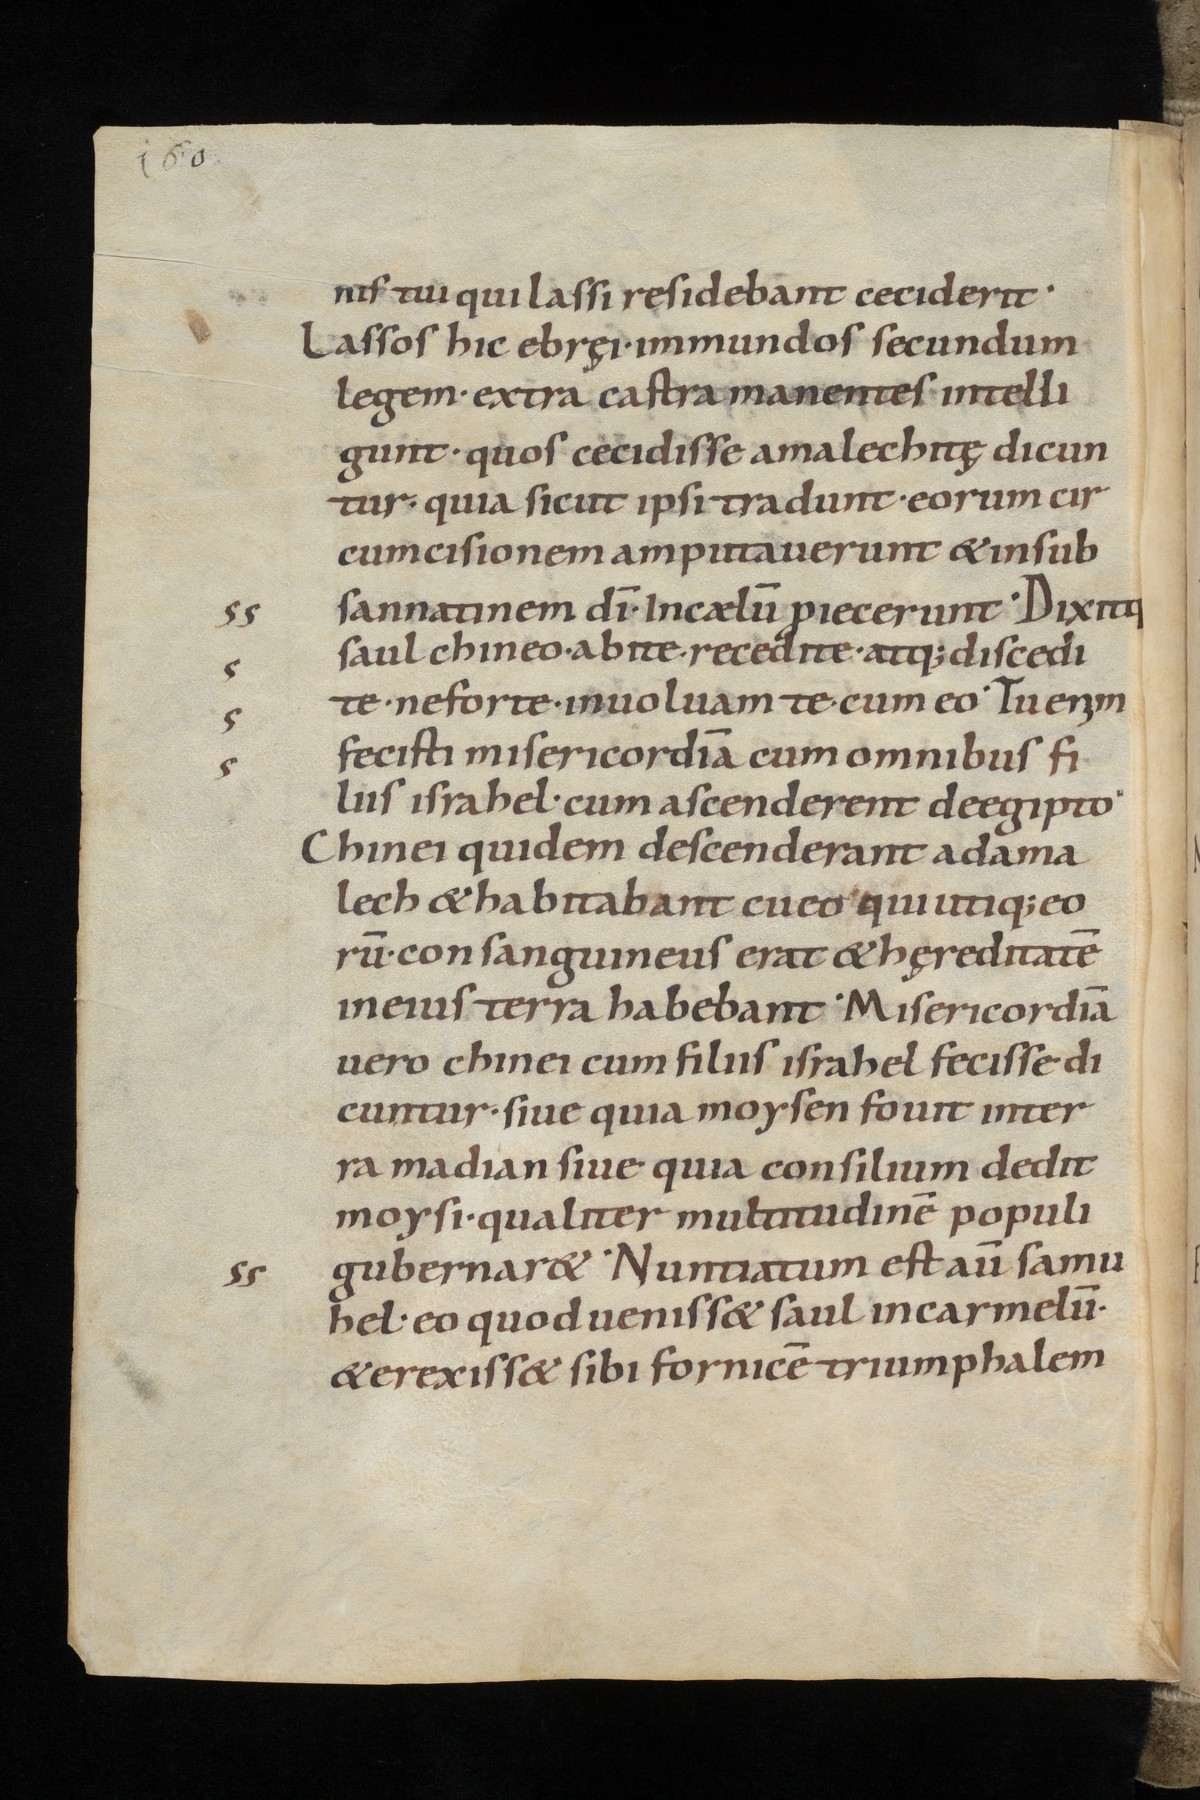 160
nis tui qui lassi residebant ceciderit ·
Lassos hic ebręi · immundos secundum
legem · extra castra manentes intelli
gunt · quos cecidisse amalechitę dicun
tur · quia sicut ipsi tradunt · eorum cir
cumcisionem amputauerunt & in sub
ss sannatinem dī · In cælū piecerunt · Dixitq
s saul chineo · abite · recedite · atq; discedi
s te · ne forte · inuoluam te · cum eo · Tu enim
s fecisti misericordiā cum omnibus fi
liis israhel · cum ascenderent de egipto ·
Chinei quidem descenderant ad ama
lech & habitabant cu eo qui utiq; eo
rū · consanguineus erat & hęreditatē
in eius terra habebant · Misericordiā
uero chinei cum filiis israhel fecisse di
cuntur · siue quia moysen fouit in ter
ra madian siue quia consilium dedit
moysi · qualiter multitudinē populi
ss gubernar& · Nuntiatum est aū samu
hel · eo quod ueniss& saul in carmelū ·
& erexiss& sibi fornicē triumphalem